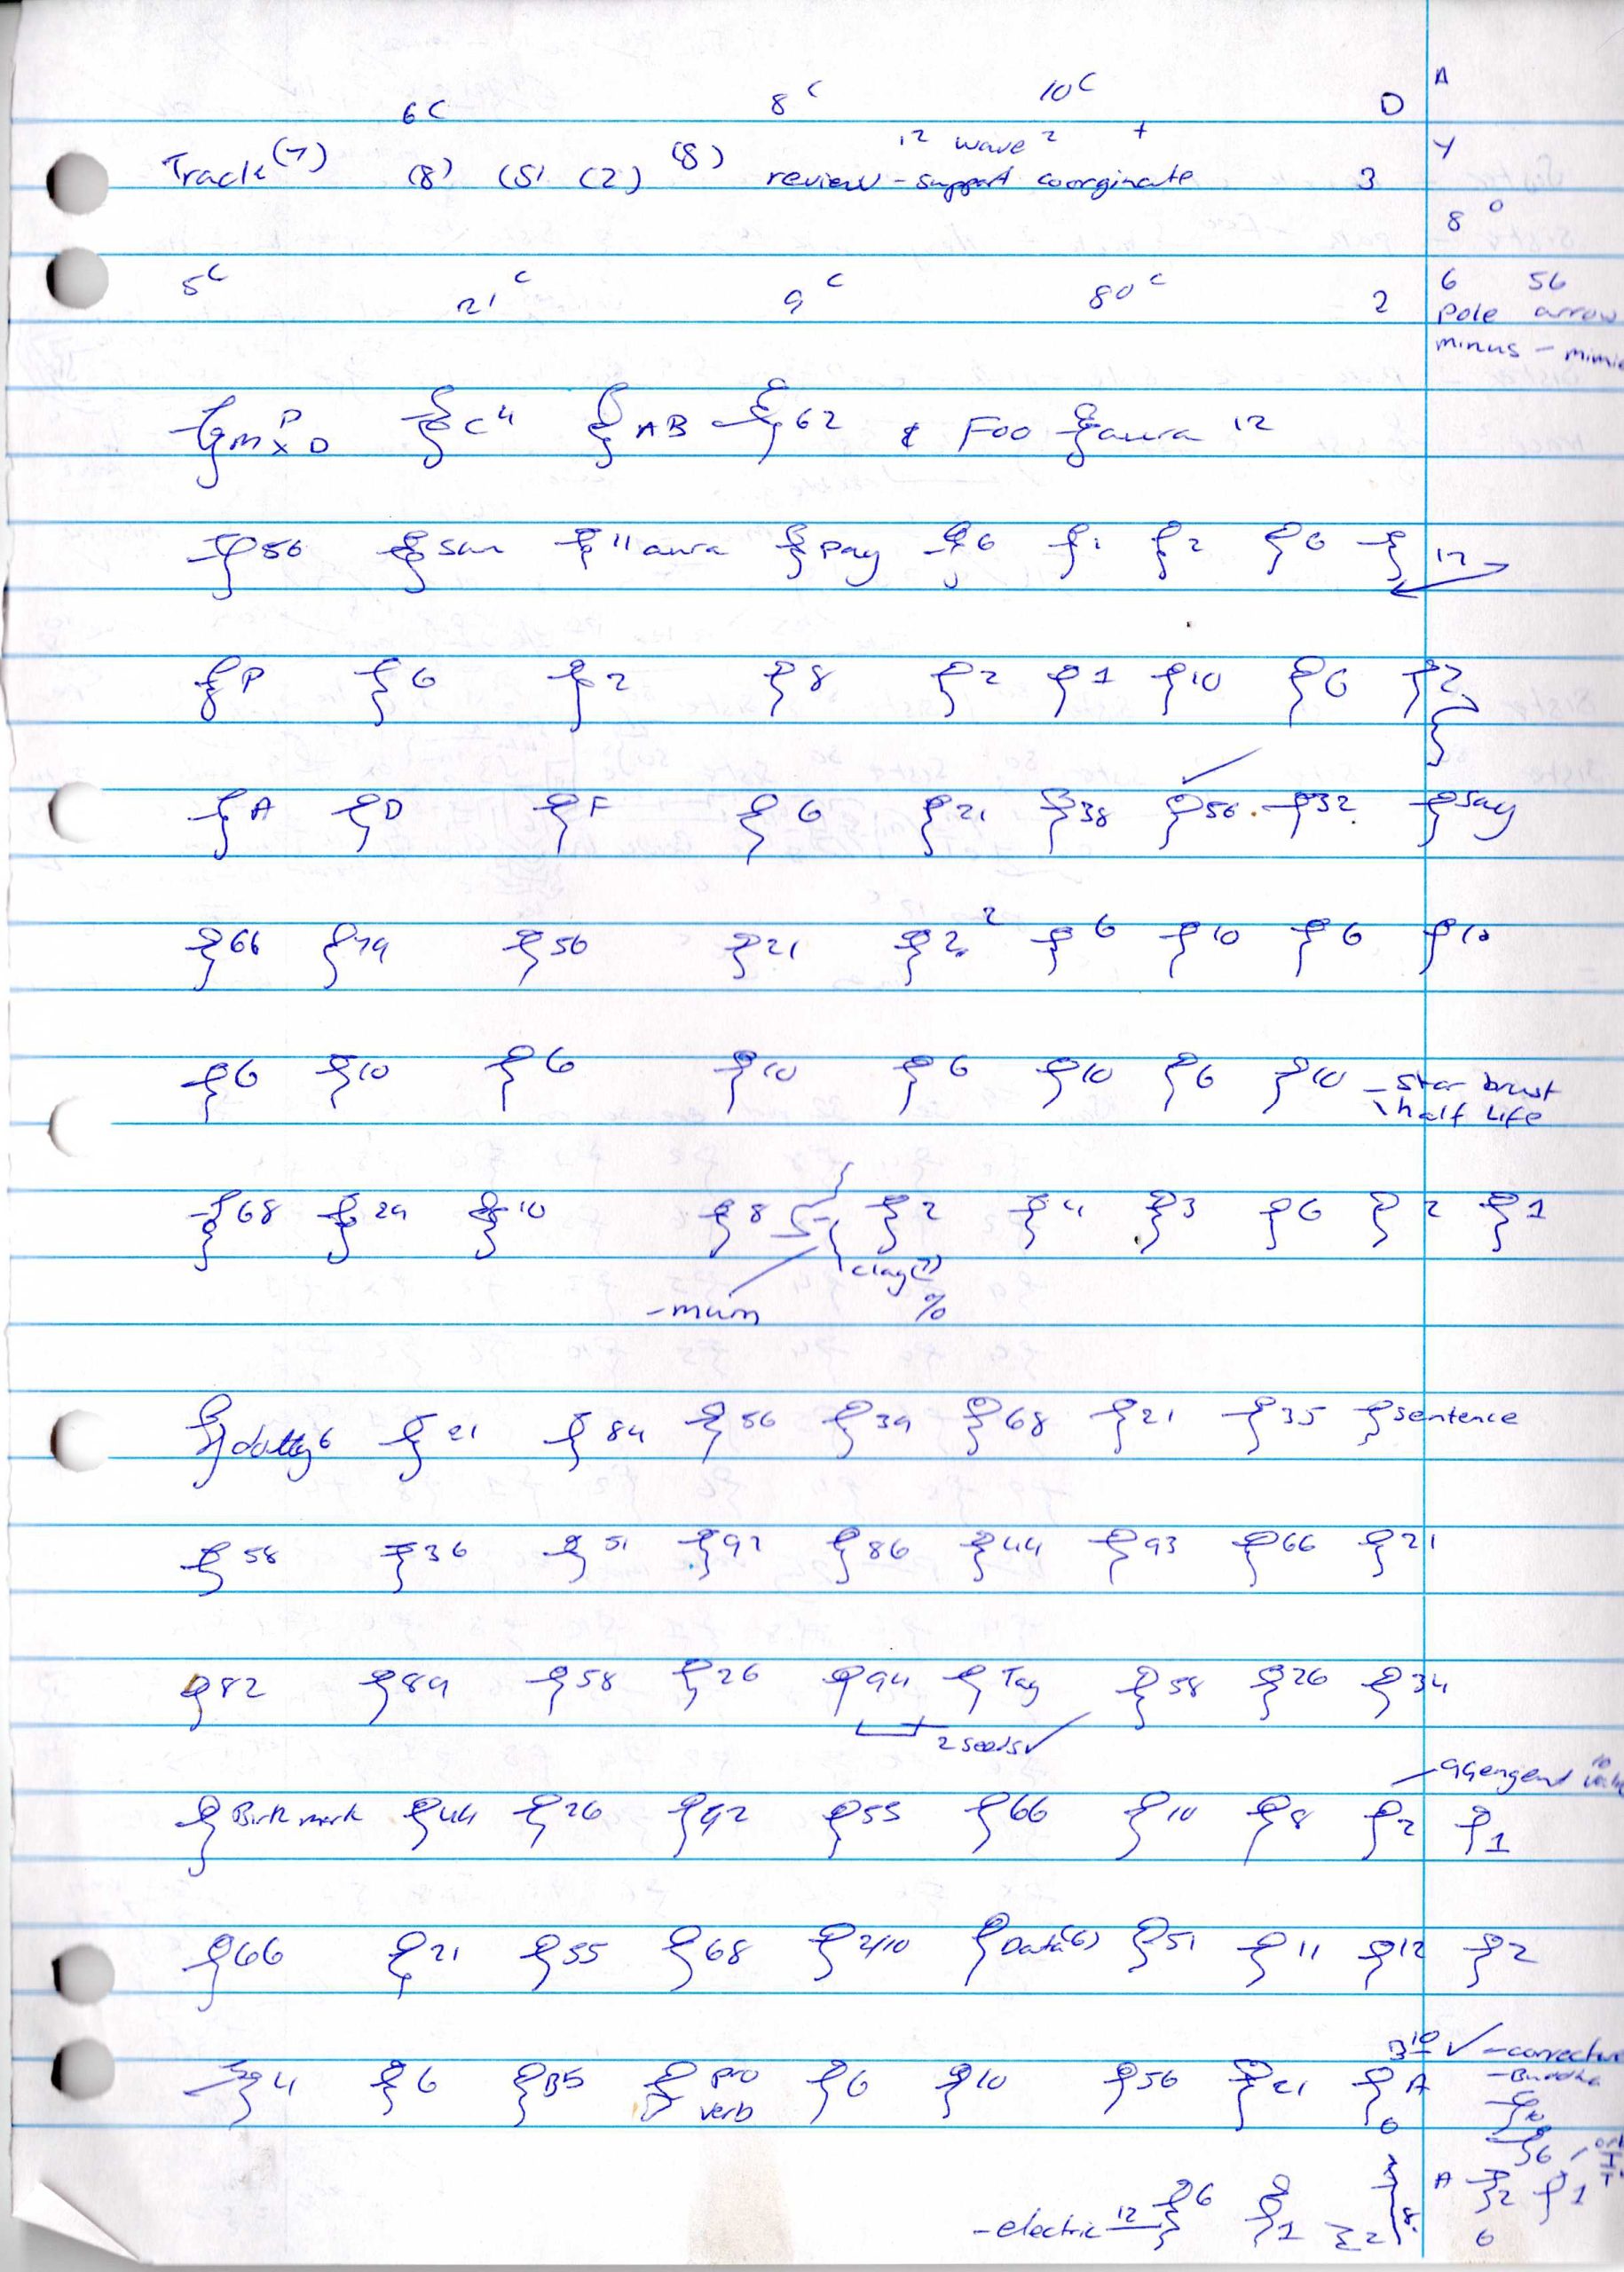 6C 8C 10C D A
12 wave 2 + Y
Track (7) (8) (5) (2) (8) review - support coorginate 3
8 0
5C 21C 9C 80C 2 6 56
Pole arrow
minus - mimic
ξ m P x D ξ C 4 ξ AB ξ 62 & Foo ξ aura 12
ξ 56 ξ sun ξ 11 aura ξ pay ξ 6 ξ 1 ξ 2 ξ 6 ξ 12
ξ P ξ 6 ξ 2 ξ 8 ξ 2 ξ 1 ξ 10 ξ 6 ξ 2
ξ A ξ D ξ F ξ 6 ξ 21 ξ 38 ξ 56 ξ 32 ξ say
ξ 66 ξ 79 ξ 56 ξ 21 ξ 2 2 ξ 6 ξ 10 ξ 6 ξ 10
ξ 6 ξ 10 ξ 6 ξ 10 ξ 6 ξ 10 ξ 6 ξ 10 - Star brust
half Life
ξ 68 ξ 29 ξ 10 ξ 8 ξ 2 ξ 4 ξ 3 ξ 6 ξ 2 ξ 1
clay (7)
- mum %
ξ 6 ξ 21 ξ 84 ξ 56 ξ 39 ξ 68 ξ 21 ξ 35 ξ sentence
ξ 58 ξ 36 ξ 51 ξ 92 ξ 86 ξ 44 ξ 93 ξ 66 ξ 21
ξ 82 ξ 89 ξ 58 ξ 26 ξ 94 ξ Tag ξ 58 ξ 26 ξ 34
2 seeds ✓
10
ξ mark ξ 44 ξ 26 ξ 92 ξ 55 ξ 66 ξ 10 ξ 8 ξ 2 ξ 1
ξ 66 ξ 21 ξ 55 ξ 68 ξ 2/10 ξ Data (6) ξ 51 ξ 11 ξ 12 ξ 2
3 10 ✓ - corrective
ξ 4 ξ 6 ξ B5 ξ pro verb ξ 6 ξ 10 ξ 56 ξ 21 ξ A - Buddha
6 ξ 10
ξ 6
A ξ 2 ξ 1
- electric 12 ξ 6 ξ 1 ξ 2 8 6